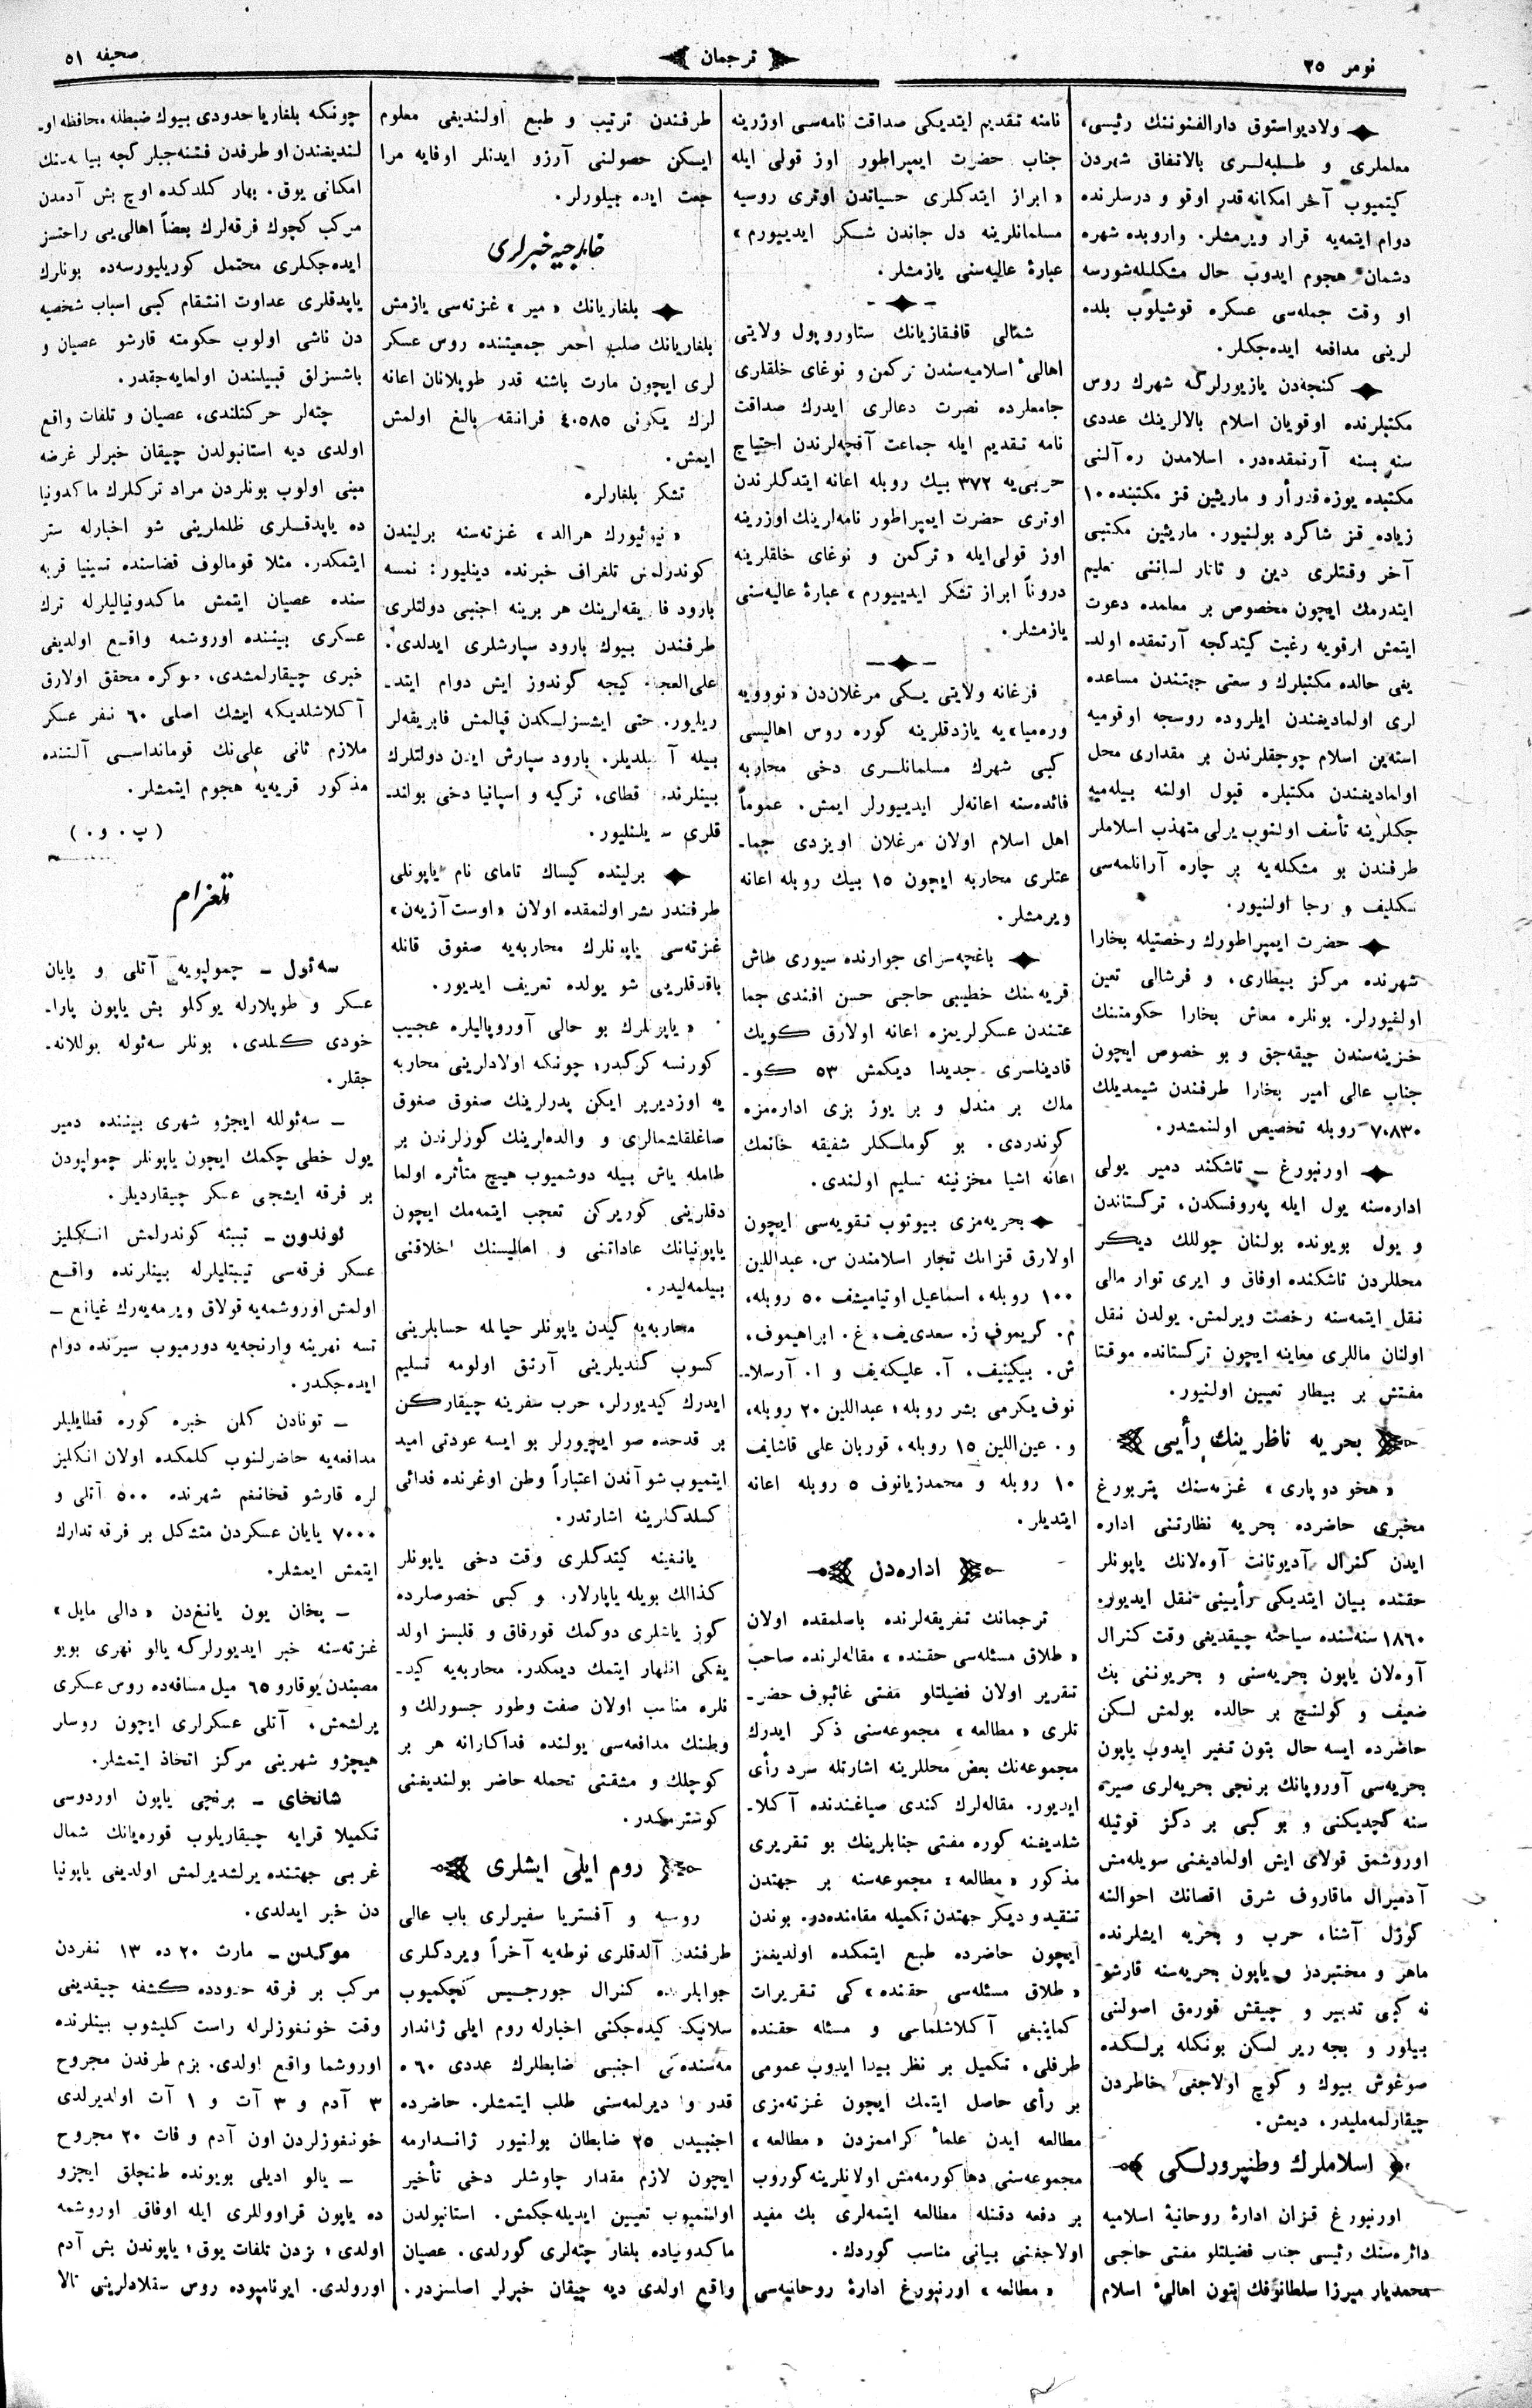 نومر ٢٥
ترجمان
صحیفه ٥١
ولادیواستوق دارالفنوننك رئیسی،
معلملری و طـلبه‌لـری بالاتفاق شهردن
كیتمیوب آخر امكانه قدر اوقو و درسلرنده
دوام ایتمه‌یه قرار ویرمشلر. واروبده شهره
دشمان هجوم ایدوب حال مشكللشورسه
او وقت جمله‌سی عسكره قوشیلوب بلده
لرینی مدافعه ایده‌جكلر.
كنجه‌دن یازیورلركه شهرك روس
مكتبلرنده اوقویان اسلام بالالرینك عددی
سنه بسنه آرتمقده‌در. اسلامدن ره‌آلنی
مكتبده یوزه قدر أر و مارئین قز مكتبنده ١٠
زیاده قز شاكرد بولنیور. مارئین مكتبی
آخر وقتلری دین و تاتار لساننی تعلیم
ایتدرمك ایچون مخصوص بر معلمده دعوت
ایتمش ارقویه رغبت كیتدكجه آرتمقده اولد-
یغی حالده مكتبلرك وسعتی جهتندن مساعده
لری اولمادیغندن ایلروده روسجه اوقومیه
استه‌ین اسلام چوجقلرندن بر مقداری محل
اولمادیغندن مكتبلره قبول اولنه بیله‌میه
جكلرینه تأسف اولنوب یرلی متهذب اسلاملر
طرفندن بو مشكله‌یه بر چاره آرانلمه‌سی
تكلیف و رجا اولنیور.
حضرت ایمپراطورك رخصتیله بخارا
شهرنده مركز بیطاری، و فرشالی تعین
اولنیورلر. بونلره معاش بخارا حكومتنك
خزینه‌سندن چیقه‌جق و بو خصوص ایچون
جناب عالی امیر بخارا طرفندن شیمدیلك
٧٠٨٣٠ روبله تخصیص اولنمشدر.
اورنبورغ – تاشكند دمیر یولی
اداره‌سنه یول ایله په‌روفسكدن، تركستاندن
و یول بویونده بولنان چوللك دیكر
محللردن تاشكنده اوفاق و ایری توار مالی
نقل ایتمه‌سنه رخصت ویرلمش. یولدن نقل
اولنان ماللری معاینه ایچون تركستانده موقتا
مفتش بر بیطار تعیین اولنیور.
بحریه ناظرینك رأیی
«هخو دو پاری» غزته‌سنك پتربورغ
مخبری حاضرده بحریه نظارتنی اداره
ایدن كنرال آدیوتانت آوه‌لانك یاپونلر
حقنده بیان ایتدیكی رأیینی نقل ایدیور.
١٨٦٠ سنه‌سنده سیاحته چیقدیغی وقت كنرال
آوه‌لان یاپون بحریه‌سنی و بحریوننی بك
ضعیف و كولنچ بر حالده بولمش لسكن
حاضرده ایسه حال بتون تغیر ایدوب یاپون
بحریه‌سی آوروپانك برنجی بحریه‌لری صیره
سنه كچدیكنی و بو كبی بر دكز قوتیله
اوروشمق قولای ایش اولمادیغنی سویله‌مش
آدمیرال ماقاروف شرق اقصانك احوالنه
كوزل آشنا، حرب و بحریه ایشلرنده
ماهر و مختبردر و یاپون بحریه‌سنه قارشو
نه كبی تدبیر و چیقش قورمق اصولنی
بیلور و بجه‌ریر لسكن بونكله برلسكده
صوغوش بیوك و كوج اولاجغی خاطردن
چیقارلمه‌ملیدر، دیمش.
اسلاملرك وطنپرورلـكی
اورنبورغ قزان ادارهٔ روحانیهٔ اسلامیه
دائره‌سنك رئیسی جناب فضیلتلو مفتی حاجی
محمدیار میرزا سلطانوفك بتون اهالیٔ اسلام
نامنه تقدیم ایتدیكی صداقت نامه‌سی اوزرینه
جناب حضرت ایمپراطور اوز قولی ایله
«ابراز ایتدكلری حسیاتدن اوتری روسیه
مسلمانلرینه دل جاندن شـكر ایدییورم»
عبارهٔ عالیه‌سنی یازمشلر.
شمالی قافقازیانك ستاوروپول ولایتی
اهالیٔ اسلامیه‌سندن تركمن و نوغای خلقلری
جامعلرده نصرت دعالری ایدرك صداقت
نامه تقدیم ایله جماعت آقچه‌لرندن احتیاج
حربی‌یه ٣٧٢ بیك روبله اعانه ایتدكلرندن
اوتری حضرت ایمپراطور نامه‌لرینك اوزرینه
اوز قولی‌ایله «تركمن و نوغای خلقلرینه
دروناً ابراز تشكر ایدییورم» عبارهٔ عالیه‌سنی
یازمشلر.
فرغانه ولایتی یـكی مرغلان‌دن «نوویه
وره‌میا»یه یازدقلرینه كوره روس اهالیسی
كبی شهرك مسلمانلـری دخی محاربه
فائده‌سنه اعانه‌لر ایدییورلر ایمش. عموماً
اهل اسلام اولان مرغلان اویزدی جما-
عتلری محاربه ایچون ١٥ بیك روبله اعانه
ویرمشلر.
باغچه‌سرای جوارنده سیوری طاش
قریه‌سنك خطیبی حاجی حسن افندی جما
عتندن عسكرلریمزه اعانه اولارق كویك
قادینلـری جدیدا دیكمش ٥٣ كو-
ملك بر مندل و بر یوز بزی اداره‌مزه
كوندردی. بو كوملـكلر شفیقه خانمك
اعانه اشیا مخزنینه تسلیم اولندی.
بحریه‌مزی بیوتوب تقویه‌سی ایچون
اولارق قزانك تجار اسلامندن س. عبداللین
١٠٠ روبله، اسماعیل اوتیامیشف ٥٠ روبله،
م. كریموف ز. سعدی‌یف، غ. ابراهیموف،
ش. بیكینیف، آ. علیكه‌یف و ا. آرسلا-
نوف یكرمی بشر روبله؛ عبداللین ٢٠ روبله،
و. عین‌اللین ١٥ روبله، قوربان علی قاشایف
١٠ روبله و محمدزیانوف ٥ روبله اعانه
ایتدیلر.
اداره‌دن
ترجمانك تفریقه‌لرنده باصلمقده اولان
«طلاق مسئله‌سی حقنده» مقاله‌لرنده صاحب
تقریر اولان فضیلتلو مفتی غائبوف حضر-
تلری «مطالعه» مجموعه‌سنی ذكر ایدرك
مجموعه‌نك بعض محللرینه اشارتله سرد رأی
ایدیور. مقاله‌لرك كندی صیاغندنده آكلا-
شلدیغنه كوره مفتی جنابلرینك بو تقریری
مذكور «مطالعه» مجموعه‌سنه بر جهتدن
تنقید و دیكر جهتدن تكمیله مقامنده‌در. بوندن
ایچون حاضرده طبع ایتمكده اولدیغمز
«طلاق مسئله‌سی حقنده» كی تقریرات
كماینبغی آكلاشلماسی و مسئله حقنده
طرفلی، تكمیل بر نظر پیدا ایدوب عمومی
بر رأی حاصل ایتمك ایچون غزته‌مزی
مطالعه ایدن علماء كراممزدن «مطالعه»
مجموعه‌سنی دها كورمه‌مش اولانلرینه كوروب
بر دفعه دقتله مطالعه ایتمه‌لری بك مفید
اولاجغنی بیانی مناسب كوردك.
«مطالعه» اورنبورغ ادارهٔ روحانیه‌سی
طرفندن ترتیب و طبع اولندیغی معلوم
ایسكن حصولنی آرزو ایدنلر اوفایه مرا
جعت ایده بیلورلر.
خارجیه خبرلری
بلغاریانك «میر» غزته‌سی یازمش
بلغاریانك صلیب احمر جمعیتنده روس عسكر
لری ایچون مارت باشنه قدر طوپلانان اعانه
لرك یكونی ٤٠٥٨٥ فرانقه بالغ اولمش
ایمش.
تشكر بلغارلره
«نیوئیورك هرالد» غزته‌سنه برلیندن
كوندرلمش تلغراف خبرنده دینلیور: نمسه
بارود فابریقه‌لرینك هر برینه اجنبی دولتلری
طرفندن بیوك بارود سپارشلری ایدلدی.
علی‌العجله كیجه كوندوز ایش دوام ایتد-
ریلیور. حتی ایشسزلـكدن قپالمش فابریقه‌لر
بیله آچیلدیلر. بارود سپارش ایدن دولتلرك
بینلرنده قطای، تركیه و اسپانیا دخی بولند-
قلری سویلنلیور.
برلینده كیساك تامای نام یاپونلی
طرفندن نشر اولنمقده اولان «اوست آزیه‌ن»
غزته‌سی یاپونلرك محاربه‌یه صغوق قانله
باقدقلرینی شو یولده تعریف ایدیور.
«یاپونلرك بو حالی آوروپالیلره عجیب
كورنسه كركدر، چونكه اولادلرینی محاربه
یه اوزدیریر ایكن پدرلرینك صغوق صغوق
صاغلقلشمالری و والده‌لرینك كوزلرندن بر
طامله یاش بیله دوشمیوب هیچ متأثره اولما
دقلرینی كوریركن تعجب ایتمه‌مك ایچون
یاپونیانك عاداتنی و اهالیسنك اخلاقنی
بیلمه‌لیدر.
محاربه‌یه كیدن یاپونلر حیاتله حسابلرینی
كسوب كندیلرینی آرتق اولومه تسلیم
ایدرك كیدیورلر، حرب سفرینه چیقاركن
بر قدحده صو ایچیورلر بو ایسه عودتی امید
ایتمیوب شو آندن اعتباراً وطن اوغرنده فدائی
كسلدكلرینه اشارتدر.
یانغینه كیتدكلری وقت دخی یاپونلر
كذالك بویله یاپارلار. و كبی خصوصلرده
كوز یاشلری دوكمك قورقاق و قلبسز اولد
یغكی اظهار ایتمك دیمكدر. محاربه‌یه كید-
نلره مناسب اولان صفت وطور جسورلك و
وطنك مدافعه‌سی یولنده فداكارانه هر بر
كوجلك و مشقتی تحمله حاضر بولندیغنی
كوسترمكدر.
روم ایلی ایشلری
روسیه و آفستریا سفیرلری باب عالی
طرفندن آلدقلری نوطه‌یه آخراً ویردكلری
جوابلرنده كنرال جورجـیس كچكمیوب
سلانیكه كیده‌جكنی اخبارله روم ایلی ژاندار
مه‌سنده‌كی اجنبی ضابطلرك عددی ٦٠ ه
قدر واردیرلمه‌سنی طلب ایتمشلر. حاضرده
اجنبیدن ٢٥ ضابطان بولنیور ژانـدارمه
ایچون لازم مقدار چاوشلر دخی تأخیر
اولنمیوب تعیین ایدیله‌جكمش. استانبولدن
ماكدونیاده بلغار چته‌لری كورلدی. عصیان
واقع اولدی دیه چیقان خبرلر اصلسزدر.
چونكه بلغاریا حدودی بیوك ضبطله محافظه او-
لندیغندن او طرفدن فتنه‌جیلر كچه بیلمه‌سنك
امكانی یوق. بهار كلدكده اوچ بش آدمدن
مركب كچوك فرقه‌لرك بعضاً اهالی‌یی راحتسز
ایده‌جكلری محتمل كوریلیورسه‌ده بونلرك
یاپدقلری عداوت انتقام كبی اسباب شخصیه
دن ناشی اولوب حكومته قارشو عصیان و
باشسزلق قبیلندن اولمایه‌جقدر.
چته‌لر حركتلندی، عصیان و تلفات واقع
اولدی دیه استانبولدن چیقان خبرلر غرضه
مبنی اولوب بونلردن مراد تركلرك ماكدونیا
ده یاپدقـلری ظلملرینی شو اخبارله ستر
ایتمكدر. مثلا قومالوف قضاسنده تسینیا قریه
سنده عصیان ایتمش ماكدونیالیلرله ترك
عسكری بیننده اوروشمه واقع اولدیغی
خبری چیقارلمشدی، صوكره محقق اولارق
آكلاشلدیكه ایشك اصلی ٦٠ نفر عسكر
ملازم ثانی علی‌نك قومانداسـی آلتنده
مذكور قریه‌یه هجوم ایتمشلر.
(پ. و.)
تلغرام
سه‌ئول – چمولپویه آتلی و یایان
عسكر و طوپلارله یوكلو بش یاپون پارا-
خودی كـلدی. بونلر سه‌ئوله یوللانه-
جقلر.
– سه‌ئولله ایجژو شهری بیننده دمیر
یول خطی چكمك ایچون یاپونلر چمولپودن
بر فرقه ایشجی عسكر چیقاردیلر.
لوندون – تیبته كوندرلمش انـكلیز
عسكر فرقه‌سی تیبتلیلرله بینلرنده واقـع
اولمش اوروشمه‌یه قولاق ویرمه‌یه‌رك غیانغ –
تسه نهرینه وارنجه‌یه دورمیوب سیرنده دوام
ایده‌جكدر.
– تونادن كلن خبره كوره قطایلیلر
مدافعه‌یه حاضرلنوب كلمكده اولان انكلیز
لره قارشو قخانغم شهرنده ٥٠٠ آتلی و
٧٠٠٠ یایان عسكردن متشكل بر فرقه تدارك
ایتمش ایمشلر.
– یخان یون یانغ‌دن «دالی مایل»
غزته‌سنه خبر ایدیورلركه یالو نهری بویو
مصبندن یوقارو ٦٥ میل مسافه‌ده روس عسكری
یرلشمش، آتلی عسكرلری ایچون روسلر
هیچژو شهرینی مركز اتخاذ ایتمشلر.
شانخای – برنجی یاپون اوردوسی
تكمیلا قرایه چیقاریلوب قوره‌یانك شمال
غربی جهتنده یرلشدیرلمش اولدیغی یاپونیا
دن خبر ایدلدی.
موكدن – مارت ٢٠ ده ١٣ نفردن
مركب بر فرقه حدودده كشفه چیقدیغی
وقت خونغوزلرله راست كلیشوب بینلرنده
اوروشما واقع اولدی. بزم طرفدن مجروح
٣ آدم و ٣ آت و ١ آت اولدیرلدی
خونغوزلردن اون آدم وفات ٢٠ مجروح
– یالو ادیلی بویونده طنچلق ایچژو
ده یاپون قراووللری ایله اوفاق اوروشمه
اولدی، بزدن تلفات یوق؛ یاپوندن بش آدم
اورولدی. ایونامپوده روس سقلادلرینی تالا